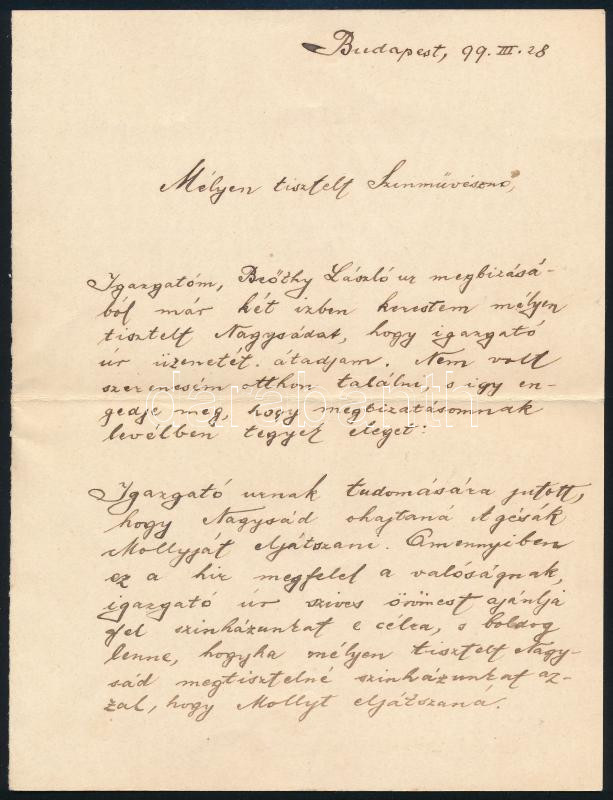 Budapest, 99. III. 28
Mélyen tisztelt Szinművésznő,
Igazgatóm, Beőthy László ur megbizásá-
ból már két izben kerestem mélyen
tisztelt Nagysádat, hogy igazgató
úr üzenetét átadjam. Nem volt
szerencsém otthon találni, s igy en-
gedje meg, hogy megbizatásomnak
levélben tegyek eleget:
Igazgató urnak tudomására jutott,
hogy Nagysád ohajtaná A gésák
Mollyját eljátszani. Amennyiben
ez a hir megfelel a valóságnak,
igazgató úr szives örömest ajánlja
fel szinházunkat e célra, s boldog
lenne, hogyha mélyen tisztelt Nagy-
sád megtisztelné szinházunkat az-
zal, hogy Mollyt eljátszaná.
darabanth